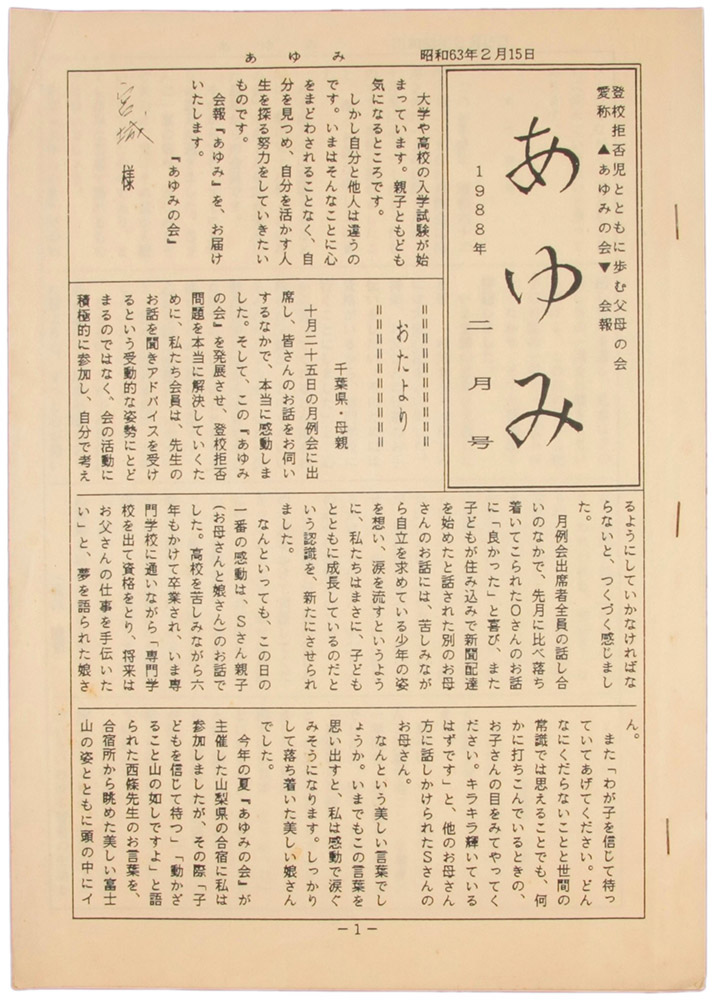 あゆみ
昭和63年2月15日
登校拒否児とともに歩む父母の会
愛称▲あゆみの会▼会報
あゆみ
1988年二月号
大学や高校の入学試験が始
まっています。親子ともども
気になるところです。
しかし自分と他人は違うの
です。いまはそんなことに心
をまどわされることなく、自
分を見つめ、自分を活かす人
生を探る努力をしていきたい
ものです。
会報『あゆみ』を、お届け
いたします。
『あゆみの会』
宮城様
おたより
千葉県・母親
十月二十五日の月例会に出
席し、皆さんのお話をお伺い
するなかで、本当に感動しま
した。そして、この『あゆみ
の会』を発展させ、登校拒否
問題を本当に解決していくた
めに、私たち会員は、先生の
お話を聞きアドバイスを受け
るという受動的な姿勢にとど
まるのではなく。会の活動に
積極的に参加し、自分で考え
るようにしていかなければな
らないと、つくづく感じまし
た。
月例会出席者全員の話し合
いのなかで、先月に比べ落ち
着いてこられたOさんのお話
に「良かった」と喜び、また
子どもが住み込みで新聞配達
を始めたと話された別のお母
さんのお話には、苦しみなが
ら自立を求めている少年の姿
を想い、涙を流すというよう
に、私たちはまさに、子ども
とともに成長しているのだと
いう認識を、新たにさせられ
ました。
なんといっても、この日の
一番の感動は、Sさん親子
(お母さんと娘さん)のお話で
した。高校を苦しみながら六
年もかけて卒業され、いま専
門学校に通いながら「専門学
校を出て資格をとり、将来は
お父さんの仕事を手伝いた
い」と、夢を語られた娘さ
ん。
また「わが子を信じて待っ
ていてあげてください。どん
なにくだらないことと世間の
常識では思えることでも、何
かに打ちこんでいるときの、
お子さんの目をみてやってく
ださい。キラキラ輝いている
はずです」と、他のお母さん
方に話しかけられたSさんの
お母さん。
なんという美しい言葉でし
ょうか。いまでもこの言葉を
思い出すと、私は感動で涙ぐ
みそうになります。しっかり
して落ち着いた美しい娘さん
でした。
今年の夏『あゆみの会』が
主催した山梨県の合宿に私は
参加しましたが、その際「子
どもを信じて待つ」「動かざ
ること山の如しですよ」と語
られた西條先生のお言葉を、
合宿所から眺めた美しい富士
山の姿とともに頭の中にイ
－1－